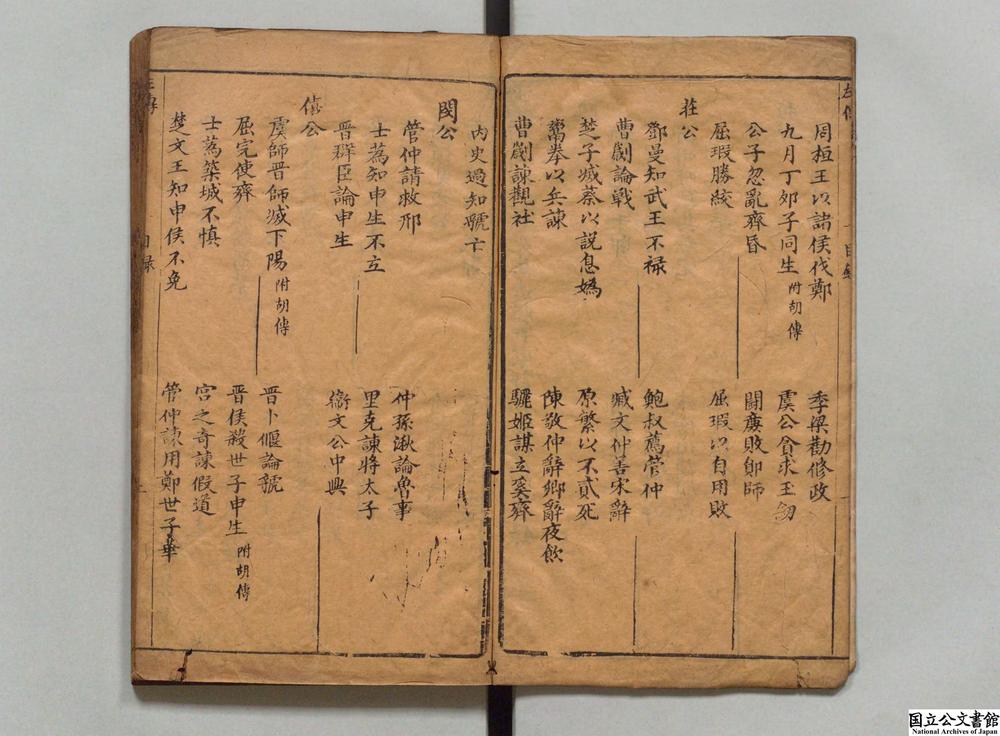 左傳 目錄
周桓王以諸侯伐鄭 季梁勸修政
九月丁卯子同生 附胡傳 虞公貪求玉
公子忽亂齊昏 鬪廉敗鄖師
屈瑕勝絞 屈瑕以自用敗
莊公
鄧曼知武王不禄 鮑叔薦管仲
曹劌論戰 臧文仲善宋辭
楚子滅蔡以説息媯 原繁以不貳死
鬻拳以兵諫 陳敬仲辭卿辭夜飲
曹劌諫觀社 驪姬謀立奚齊
內史過知虢亡
閔公
管仲請救邢 仲孫湫論魯事
士蒍知申生不立 里克諫將太子
晉群臣論申生 衛文公中興
僖公
虞師晉師滅下陽 附胡傳 晉卜偃論虢
屈完使齊 晉侯殺世子申生 附胡傳
士蒍築城不慎 宮之奇諫假道
楚文王知申侯不免 管仲諫用鄭世子華
左傳 目錄
国立公文書館
National Archives of Japan